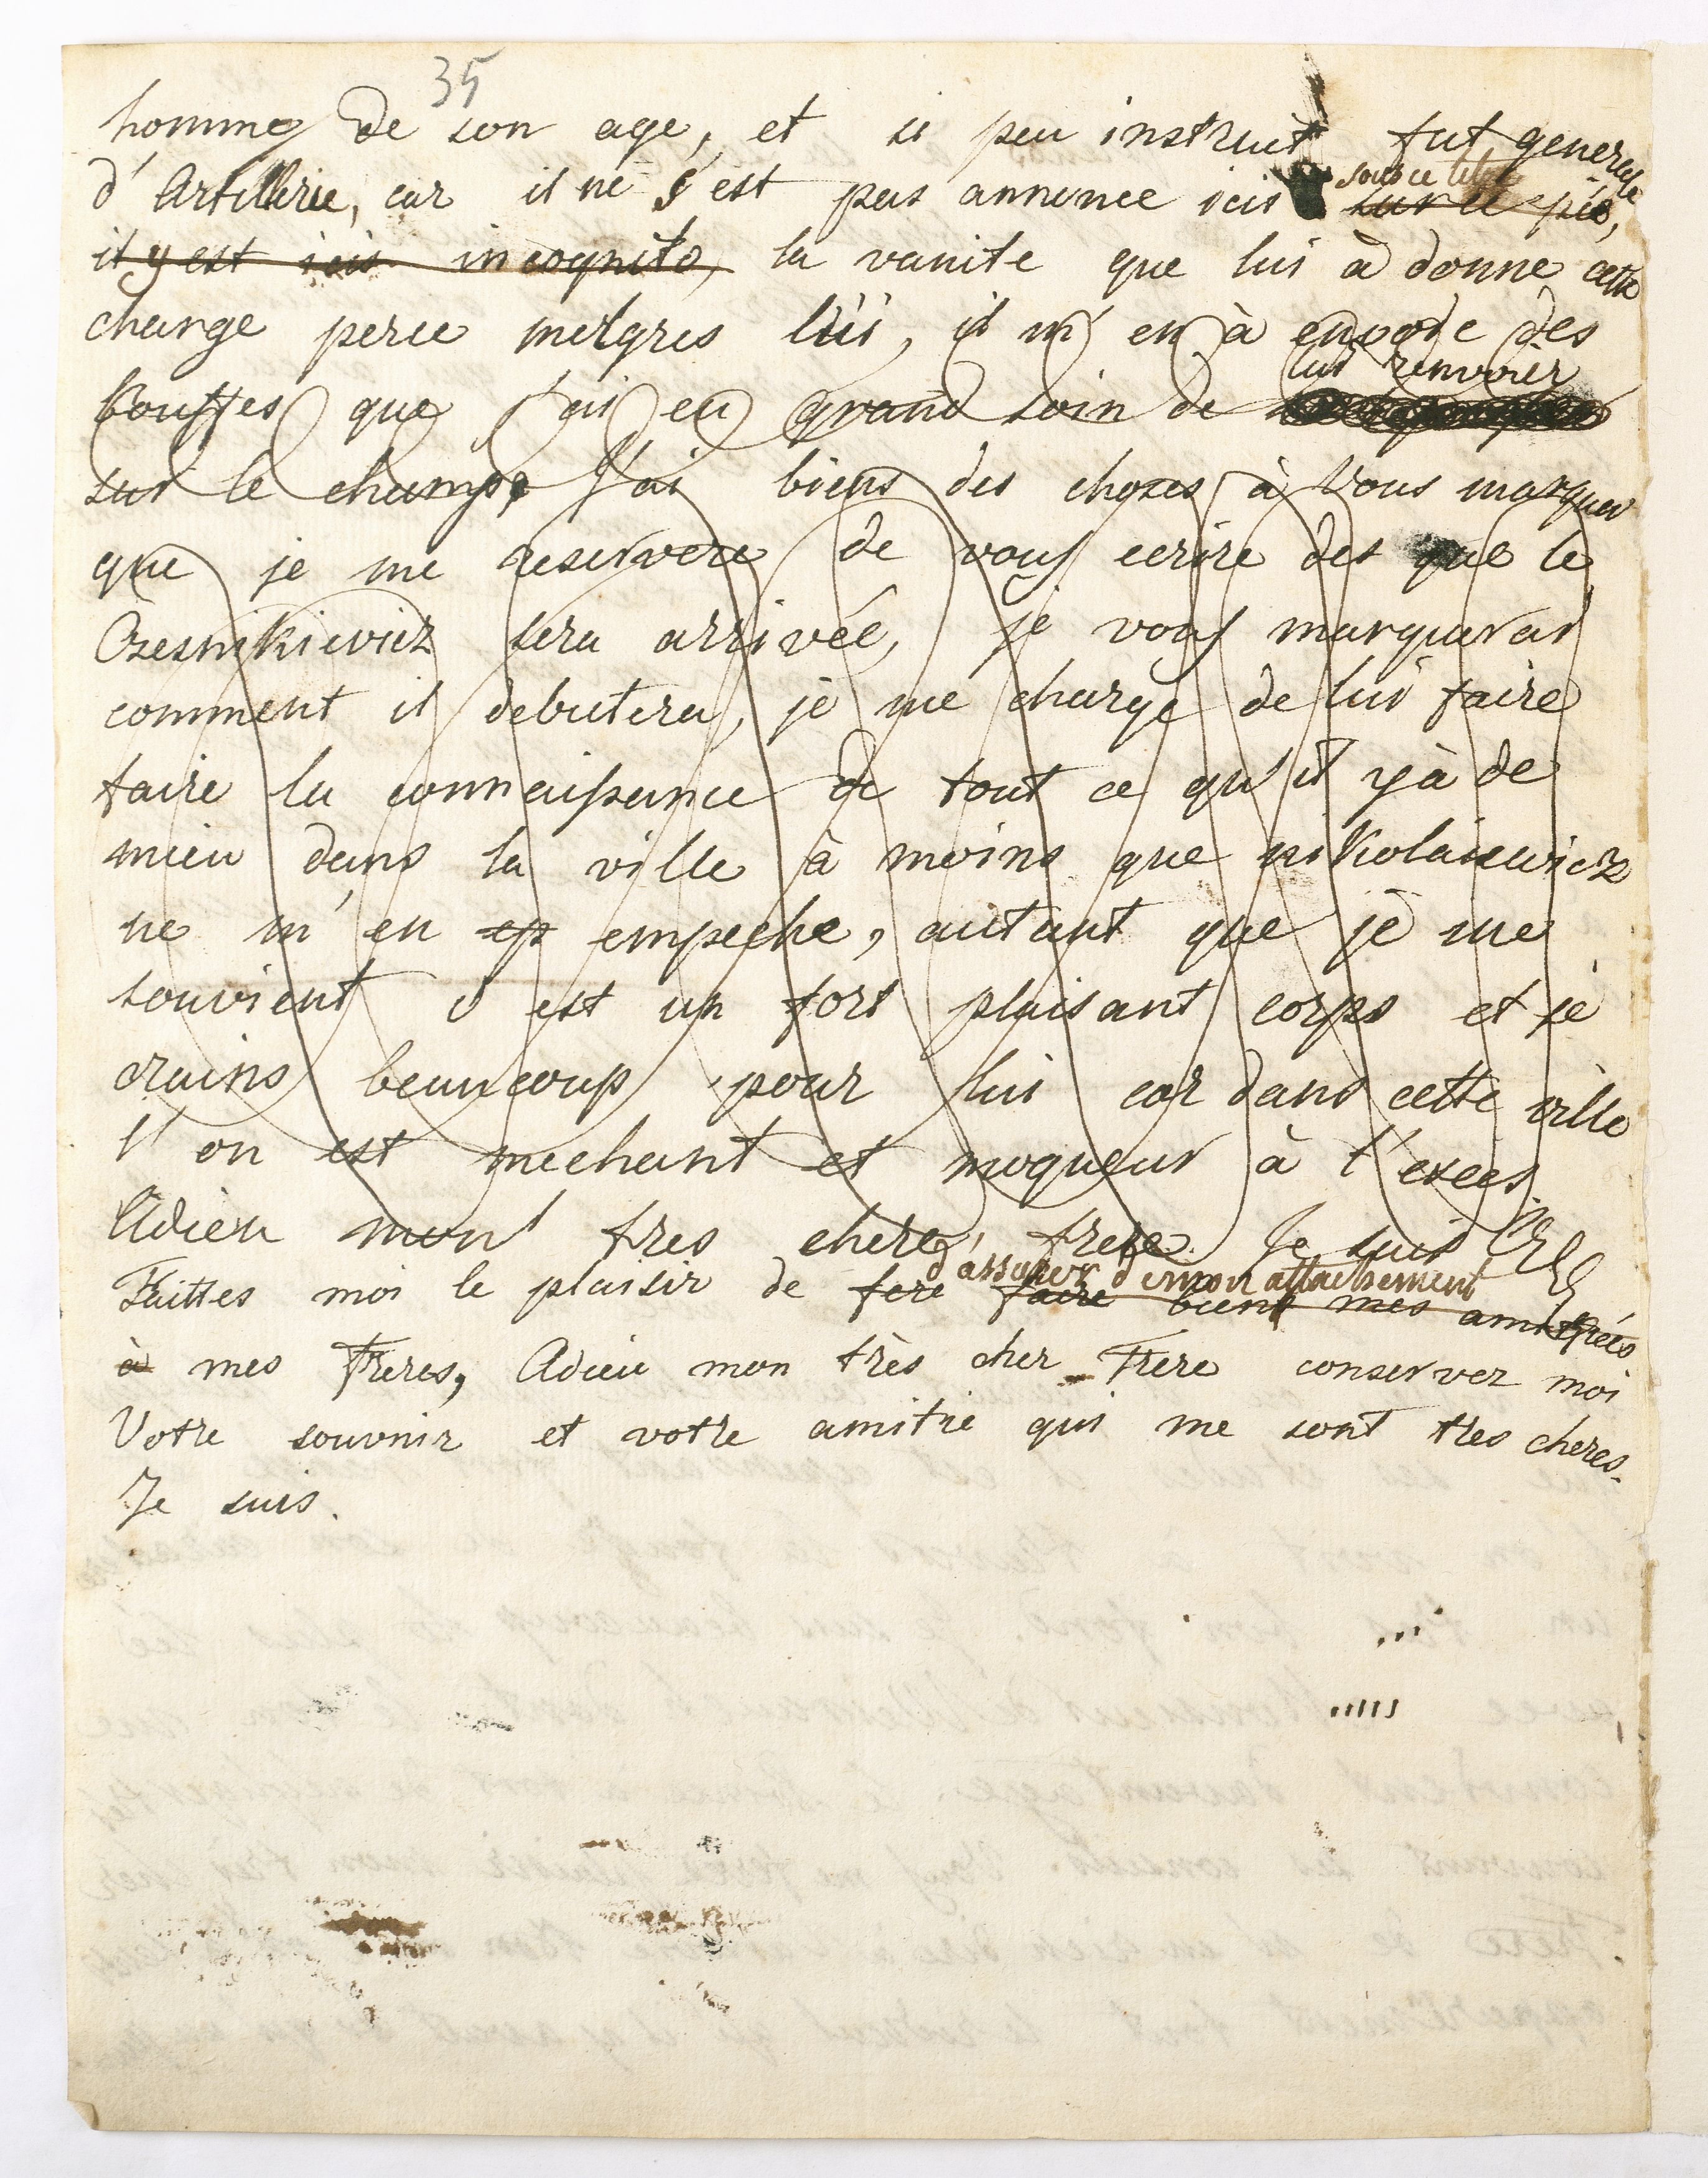 35
homme de son age, et si peu instruit fut general
d'Artillerie, car il ne s'est pas annonce icis sous ce titre sur ce pié,
il y est icis incognito, la vanite que lui à donne cette
charge perce melgres lui, il m'en à envoye des
bouffes que j'ai eu grand soin de lui renvoier
sur le champ, J'ai biens des choses à vous marquer
que je me reservere de vous ecrire des que le
Czesnikievicz sera arrivée, je vous marquerai
comment il debutera, je me charge de lui faire
faire la connaissance de tout ce qu'il y à de
mieu dans la ville à moins que nikolaiewicz
ne m'en ep empeche, autant que je me
souvient c'est un fort plaisant corps et je
crains beaucoup pour lui car dans cette ville
l'on est mechant et moqueur à l'exces
Adieu mon tres chere, frere. Je suis
d'assurer de mon attachement
Faittes moi le plaisir de fere faire bient mes amitiées
à mes Freres, Adieu mon très cher Frere conservez moi
Votre souvnir et votre amitie qui me sont tres cheres.
Je suis.